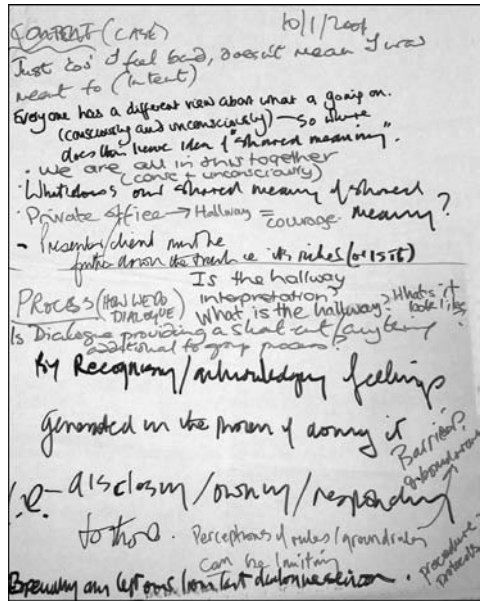 CONTENT (CASE) 10/1/2001
Just cos' I feel bad, doesn't mean I was
meant to (intent)
Everyone has a different view about what is going on.
(consciously and unconsciously) — so where
does this leave idea of "shared meaning".
· We are all in this together
(consc + unconsciously)
· What does our shared meaning of shared
meaning?
· Private office → Hallway = courage.
- Presenter/client must be
further down the track i.e. its riches (or is it)
PROCESS (HOW WE DO
DIALOGUE)
Is the hallway
interpretation?
What is the hallway? What's it
look like?
Is Dialogue providing a short cut/anything
additional to group process?
By Recognising/acknowledging feelings
generated in the process of doing it
i.e - disclosing/owning/responding
to those.
· Perceptions of rules/groundrules
can be limiting
Barriers?
procedure
protocols
Especially any left over from last dialogue session.